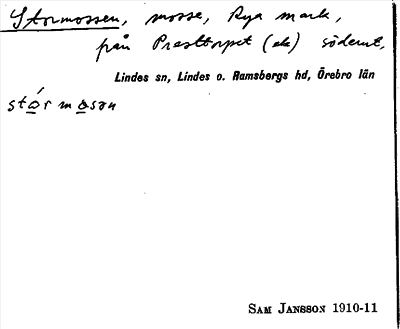 Stormossen, mosse, Rya mark,
från Prosttorpet (ek) söderut.
Lindes sn, Lindes o. Ramsbergs hd, Örebro län
stór mosən
SAM JANSSON 1910-11